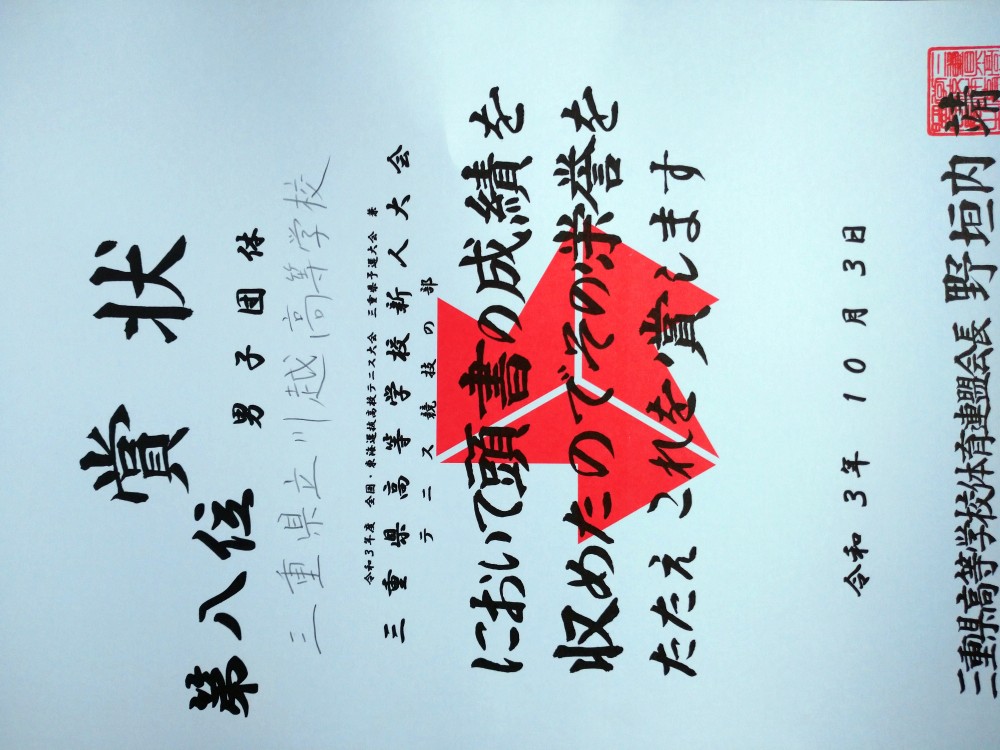 賞状
第八位 男子団体
三重県立川越高等学校
令和3年度 全国・東海選抜高校テニス大会 三重県予選大会 兼
三重県高等学校新人大会
テニス競技の部
において頭書の成績を
収めたのでその栄誉を
たたえこれを賞します
令和3年 10月3日
三重県高等学校体育連盟会長 野垣内 靖